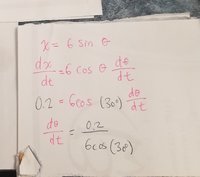 x = 6 sin θ
dx/dt = 6 cos θ dθ/dt
0.2 = 6cos (30°) dθ/dt
dθ/dt = 0.2/6cos (30°)